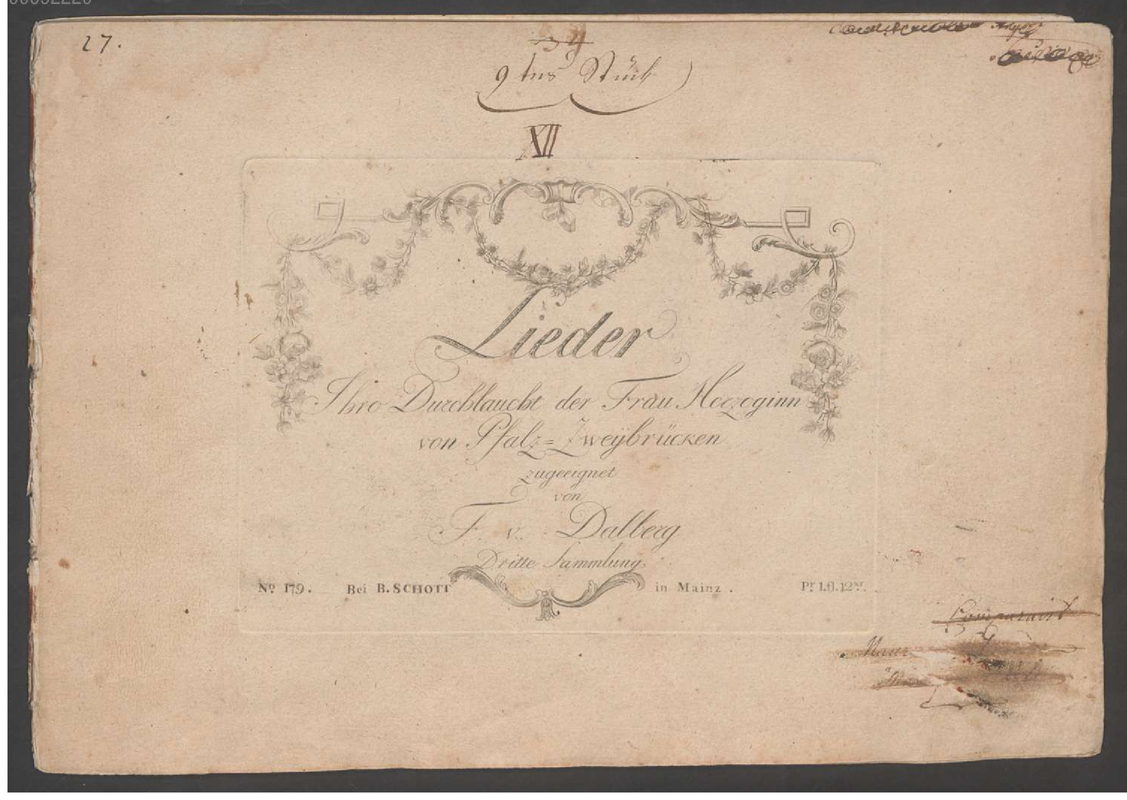 00092220
27.
34
9tes Stück
XII
Lieder
Ihro Durchlaucht der Frau Herzoginn
von Pfalz=Zweÿbrücken
zugeeignet
von
F. v. Dalberg
Dritte Sammlung.
No 179. Bei B. SCHOTT in Mainz. Pr 1.fl.12Xr.